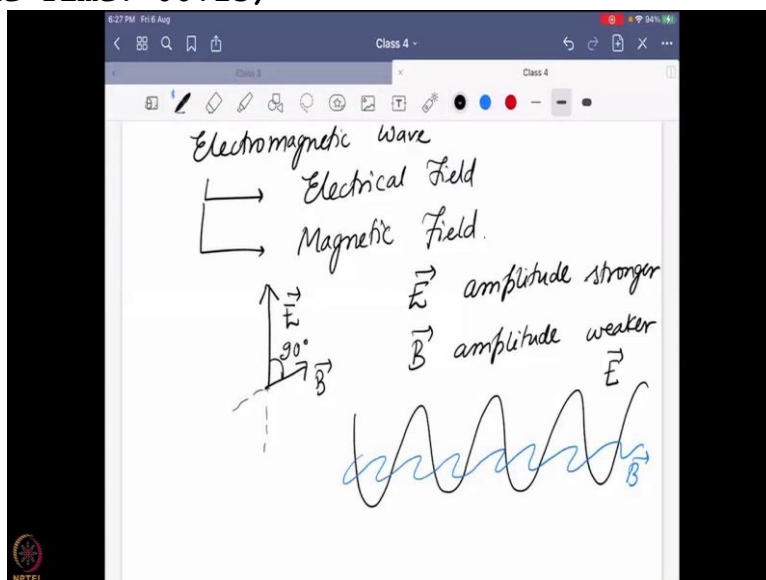 6:27 PM Fri 6 Aug
94%
Class 4
Class 3
Class 4
Electromagnetic Wave
Electrical Field
Magnetic Field.
E amplitude stronger
B amplitude weaker
E
90°
B
E
B
NPTEL